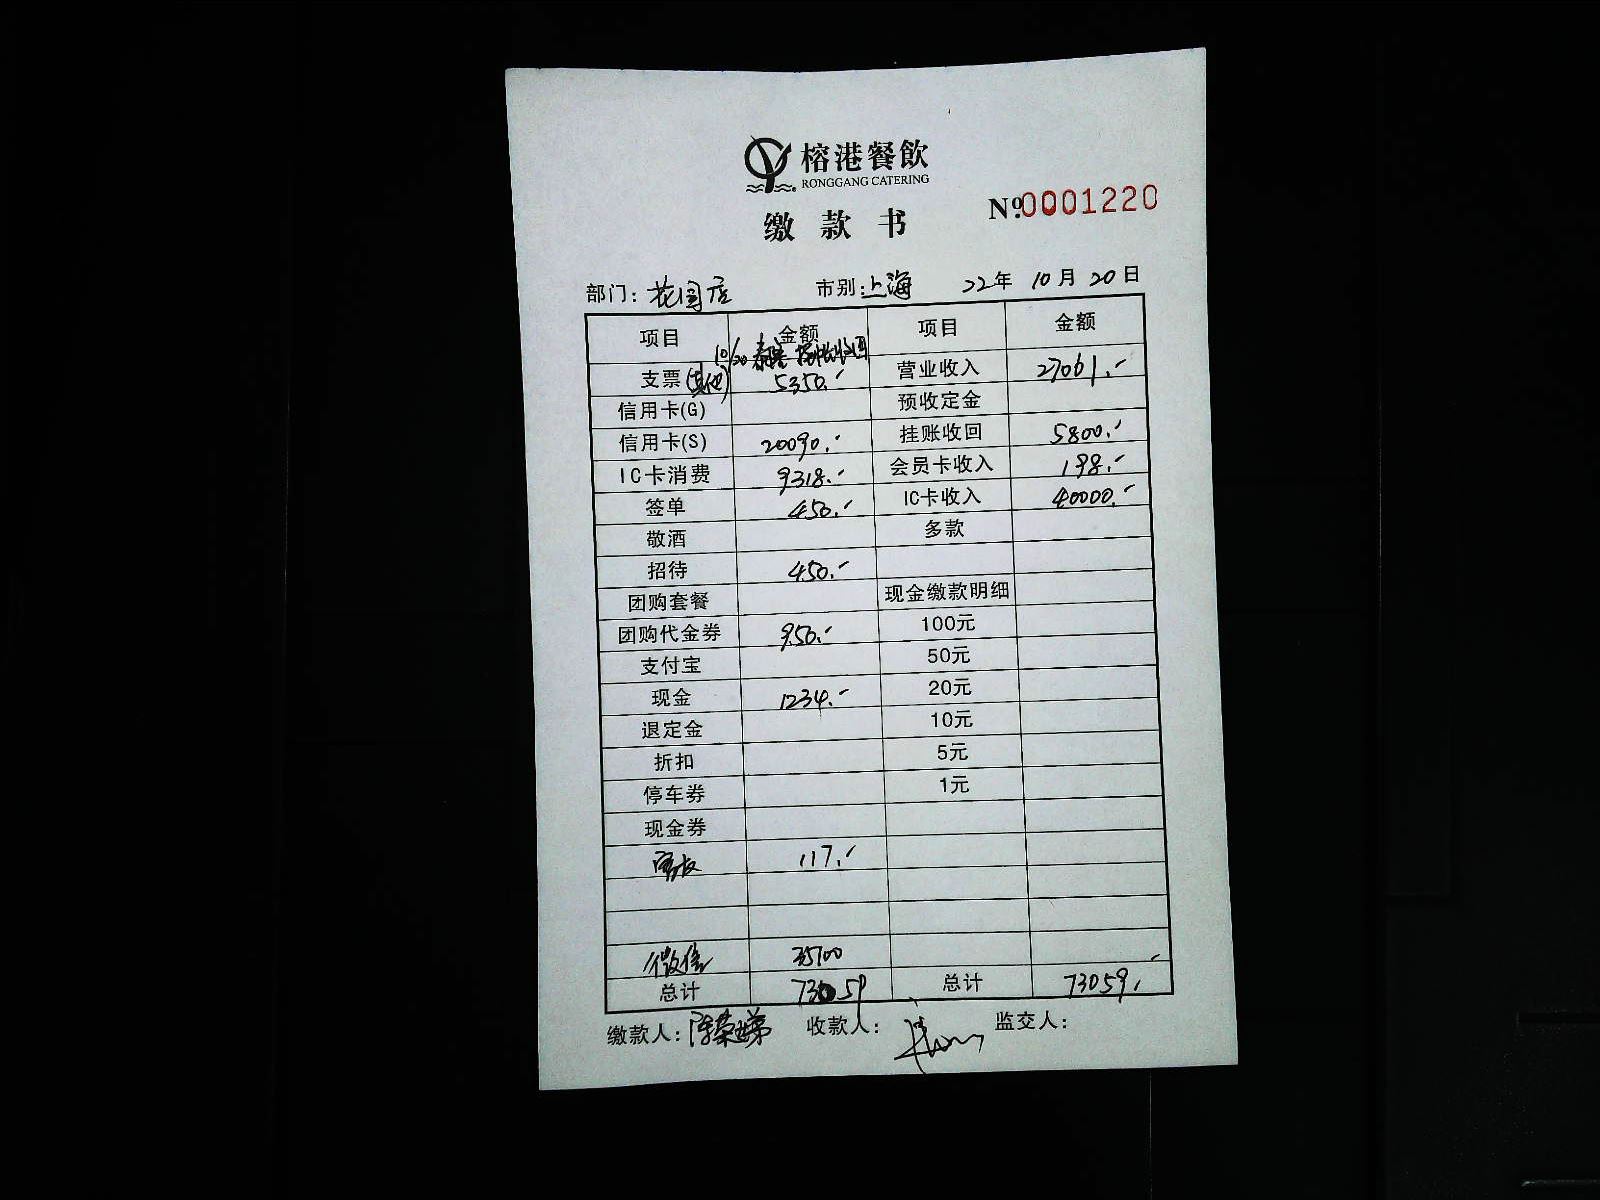 榕港餐飲
RONGGANG CATERING
缴款书
№0001220
部门：花园店 市别：上海 22年 10月 20日
项目 金额 项目 金额
10/20
支票(其他) 5350.- 营业收入 27061.-
信用卡(G) 预收定金
信用卡(S) 20090.- 挂账收回 5800.-
IC卡消费 9318.- 会员卡收入 198.-
签单 450.- IC卡收入 40000.-
敬酒 多款
招待 450.-
团购套餐 现金缴款明细
团购代金券 950.- 100元
支付宝 50元
现金 1234.- 20元
退定金 10元
折扣 5元
停车券 1元
现金券
117.-
微信 35100
总计 73059 总计 73059.-
缴款人： 收款人： 监交人：